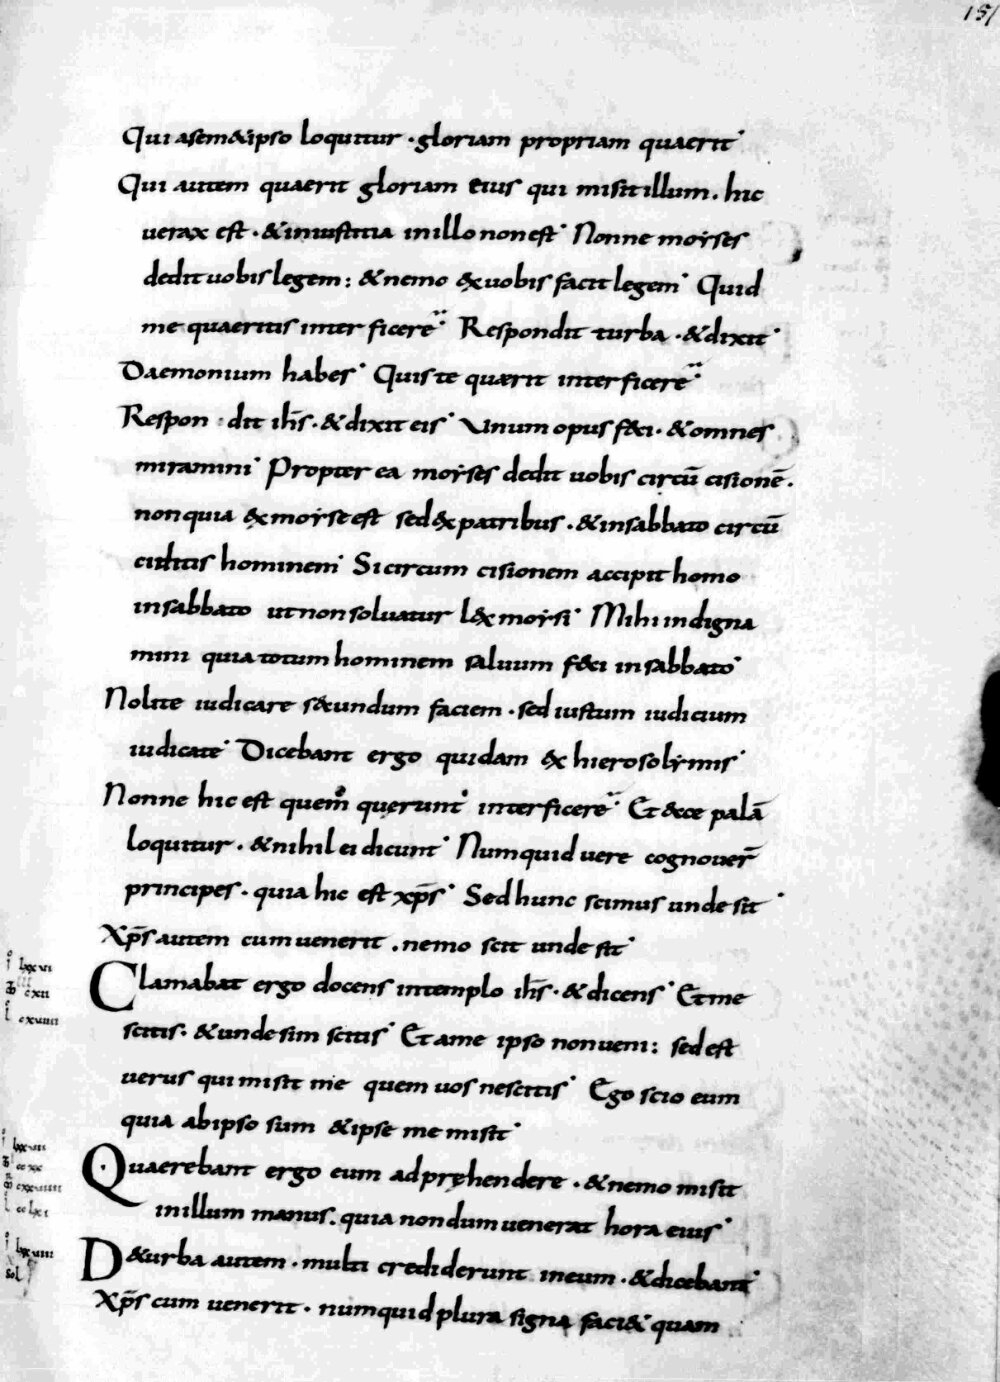 151
Qui asem&ipso loquitur · gloriam propriam quaerit·
Qui autem quaerit gloriam eius qui misit illum · hic
uerax est · &iniustitia inillo non est· Nonne moyses
dedit uobis legem : &nemo exuobis facit legem· Quid
me quaeritis interficere· Respondit turba · &dixit·
Daemonium habes· Quis te quaerit interficere·
Respondit ihs̄ · &dixit eis· Unum opus feci · &omnes
miramini· Propter ea moyses dedit uobis circū cisionē ·
non quia ex moyse est sed ex patribus · &insabbato circū
ciditis hominem· Si circum cisionem accipit homo
insabbato ut non soluatur lex moysi· Mihi indigna
mini quia totum hominem saluum feci insabbato·
Nolite iudicare s&cundum faciem · sed iustum iudicium
iudicate· Dicebant ergo quidam ex hierosolymis·
Nonne hic est quem querunt interficere· Et ecce palā
loquitur · &nihil ei dicunt· Numquid uere cognouer̄
principes · quia hic est xp̄s· Sed hunc scimus unde sit·
Xp̄s autem cum uenerit · nemo scit unde sit·
Clamabat ergo docens intemplo ihs̄ · &dicens· Et me
scitis · &unde sim scitis· Et ame ipso non ueni : sed est
uerus qui misit me quem uos nescitis· Ego scio eum
quia abipso sum &ipse me misit·
Quaerebant ergo eum adpręhendere · &nemo misit
inillum manus · quia nondum uenerat hora eius·
D&urba autem · multi crediderunt ineum · &dicebant·
Xp̄s cum uenerit · numquid plura signa faci& quam